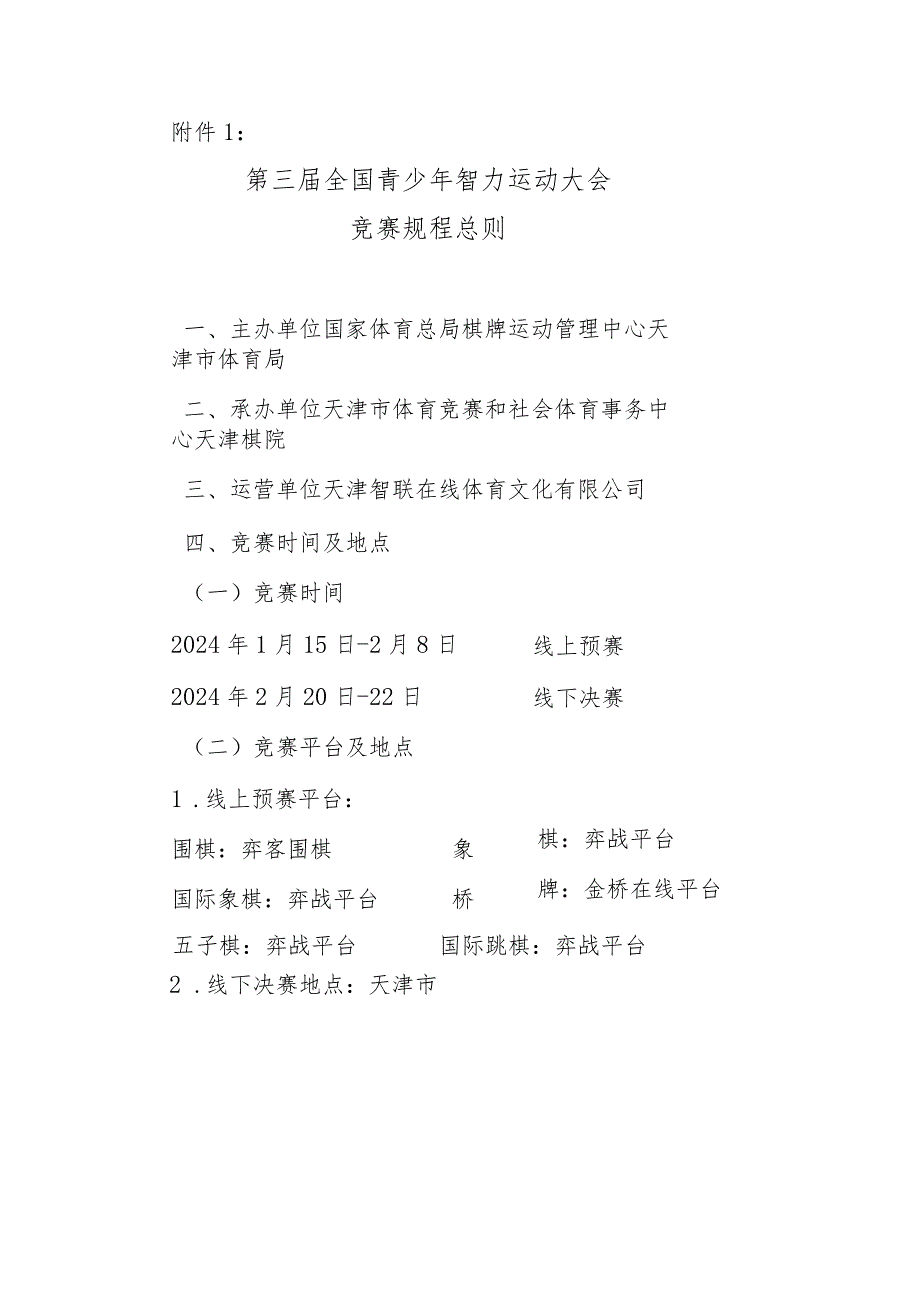 附件1：
第三届全国青少年智力运动大会
竞赛规程总则
一、主办单位国家体育总局棋牌运动管理中心天
津市体育局
二、承办单位天津市体育竞赛和社会体育事务中
心天津棋院
三、运营单位天津智联在线体育文化有限公司
四、竞赛时间及地点
（一）竞赛时间
2024年1月15日-2月8日 线上预赛
2024年2月20日-22日 线下决赛
（二）竞赛平台及地点
1 .线上预赛平台：
围棋：弈客围棋 象 棋：弈战平台
国际象棋：弈战平台 桥 牌：金桥在线平台
五子棋：弈战平台 国际跳棋：弈战平台
2 .线下决赛地点：天津市